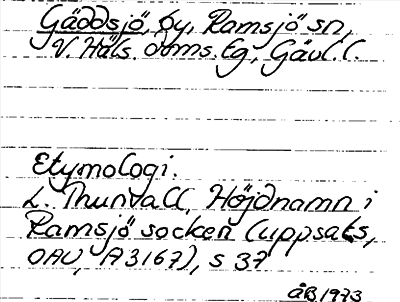 Gäddsjö, by, Ramsjö sn,
V. Häls. doms.tg, Gävl. l.
Etymologi.
L. Thunvall, Höjdnamn i
Ramsjö socken (uppsats,
OAU, A3167), s 37
ÅB 1973